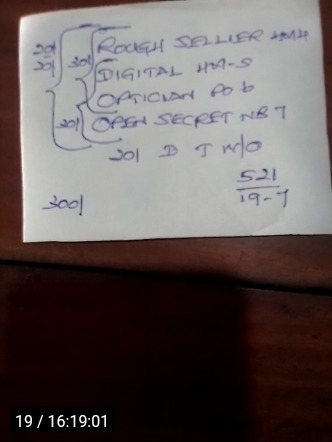 20/ 20/ 30/ ROUGH SELLIER
DIGITAL HM-S
OPTICIAN PO 6
20/ OPEN SECRET NB 7
20/ D T N/O
521
300/ 19-7
19 / 16:19:01